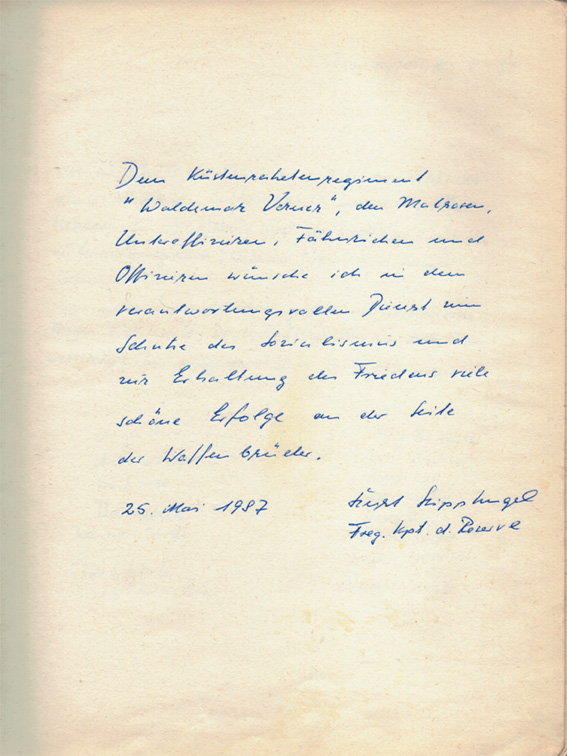 Dem Küstenraketenregiment
"Waldemar Verner", den Matrosen,
Unteroffizieren, Fähnrichen und
Offizieren wünsche ich in dem
verantwortungsvollen Dienst zum
Schutze des Sozialismus und
zur Erhaltung des Friedens viele
schöne Erfolge an der Seite
der Waffenbrüder.
25. Mai 1987
Freg. Kpt. d. Reserve